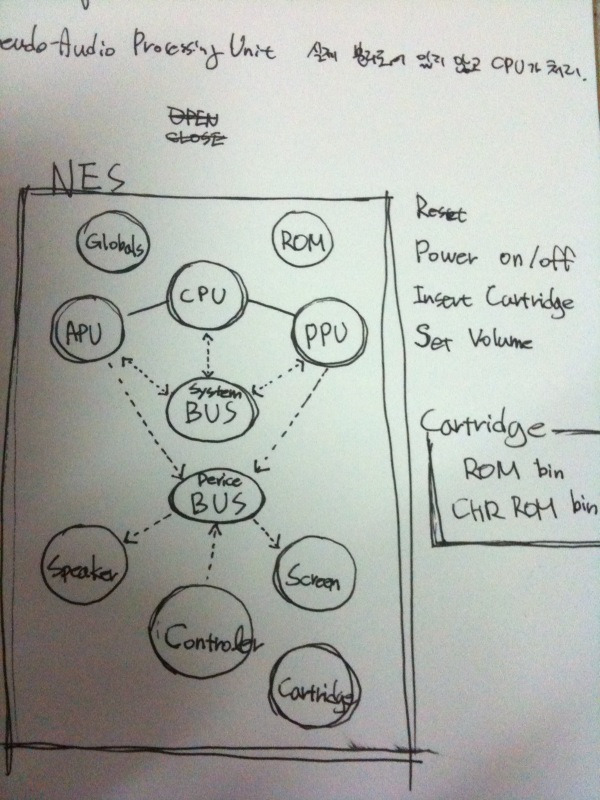 eudo-Audio Processing Unit 실제 별도로 있지 않고 CPU가 처리.
OPEN
CLOSE
NES
Globals
ROM
CPU
APU
PPU
System
BUS
Device
BUS
Speaker
Screen
Controler
Cartridge
Reset
Power on/off
Insert Cartridge
Set Volume
Cartridge
ROM bin
CHR ROM bin